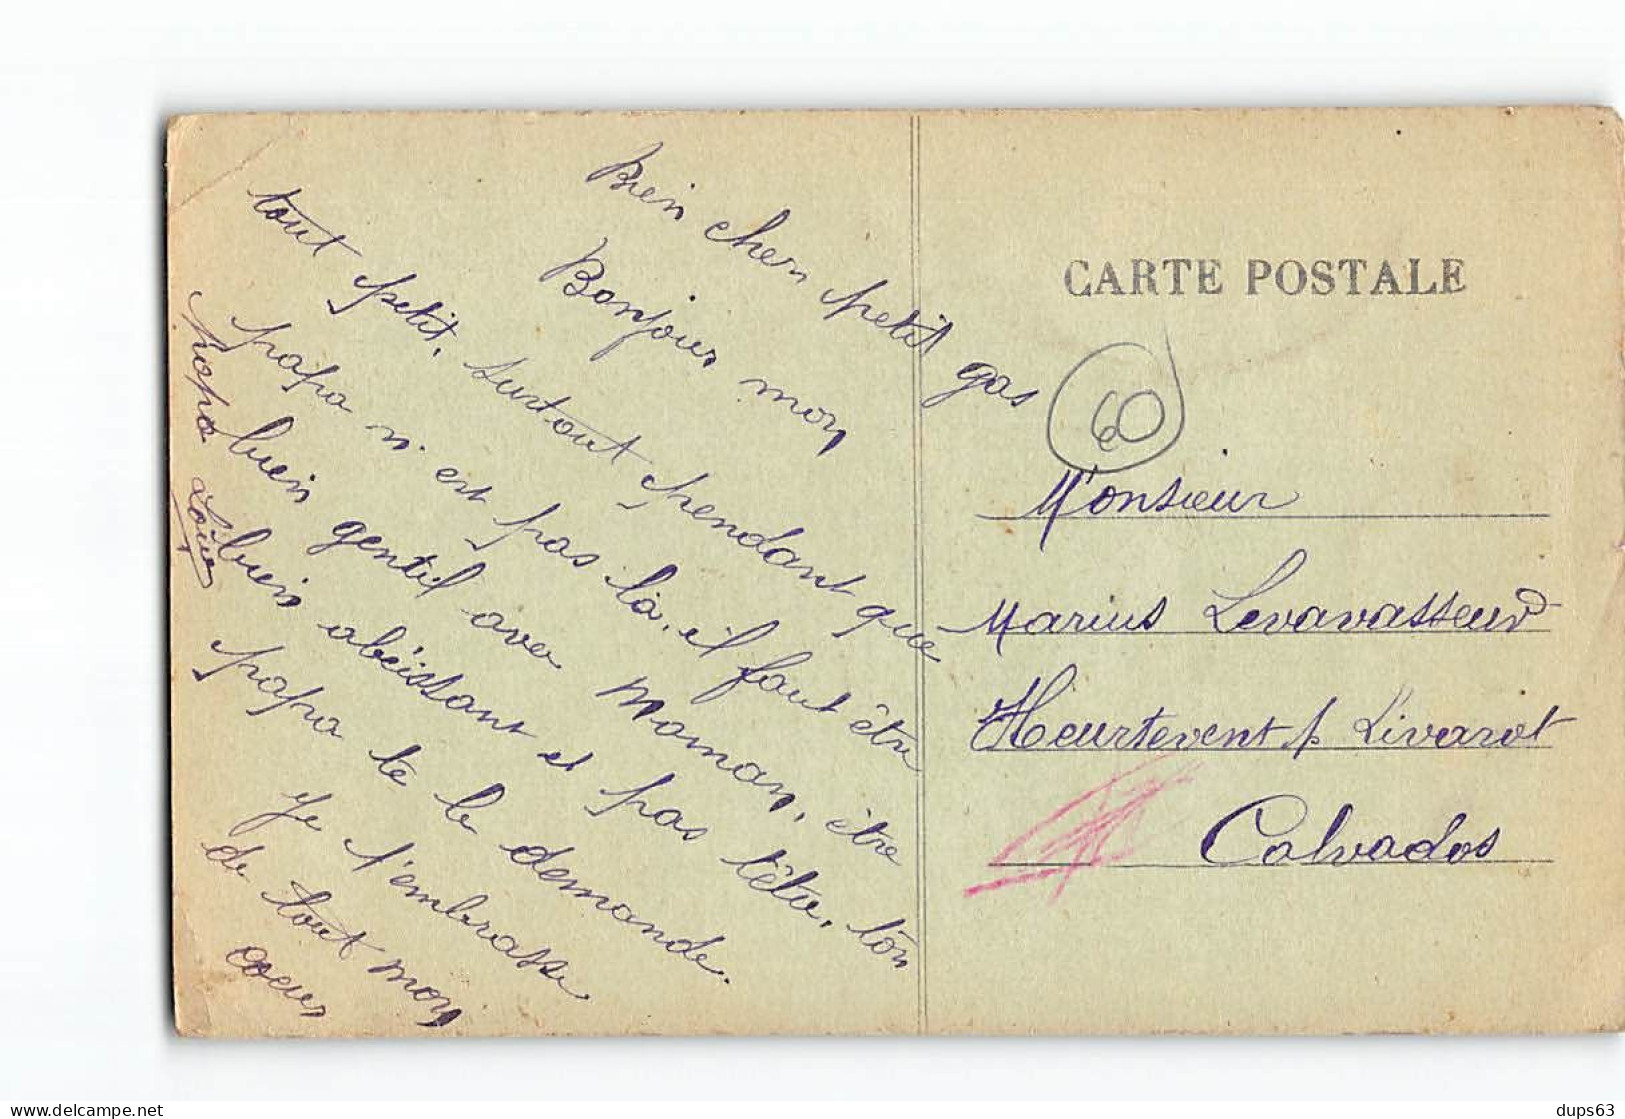 Bien cher petit gas
Bonjour mon
tout petit, surtout pendant que
papa n'est pas là, il faut être
bien gentil avec Maman, être
bien obéissant et pas têtu, ton
papa te le demande.
Je t'embrasse
de tout mon
coeur
papa
CARTE POSTALE
60
Monsieur
Marius Levavasseur
Heurtevent p Livarot
Calvados
dups63